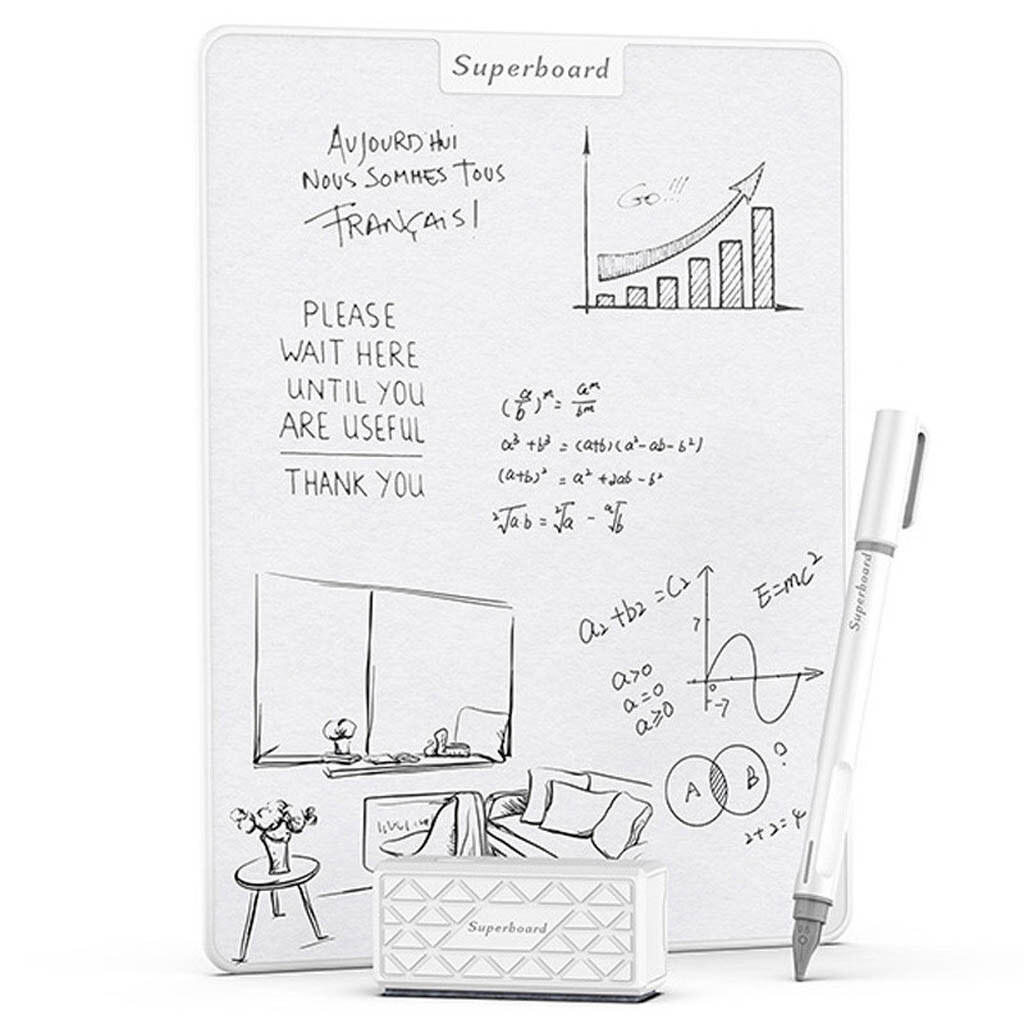 Superboard
AUJOURD'HUI
NOUS SOMMES TOUS
FRANÇAIS!
GO!!!
PLEASE
WAIT HERE
UNTIL YOU
ARE USEFUL
THANK YOU
(a/b)^m = a^m/b^m
a³ + b³ = (a+b)(a²-ab-b²)
(a+b)² = a² + 2ab - b²
²√a·b = ²√a - ⁿ√b
a₂ + b₂ = C₂
E=mc²
a>0
a=0
a≥0
7
0
-7
A
B
?
2+2=4
Superboard
Superboard